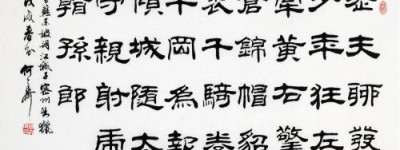 老夫聊發
少年狂左
牽黃右擎
蒼錦帽貂
裘千騎卷
平岡爲報
傾城隨太
守親射虎
看孫郎
蘇東坡詞江城子密州出獵
戊戌春